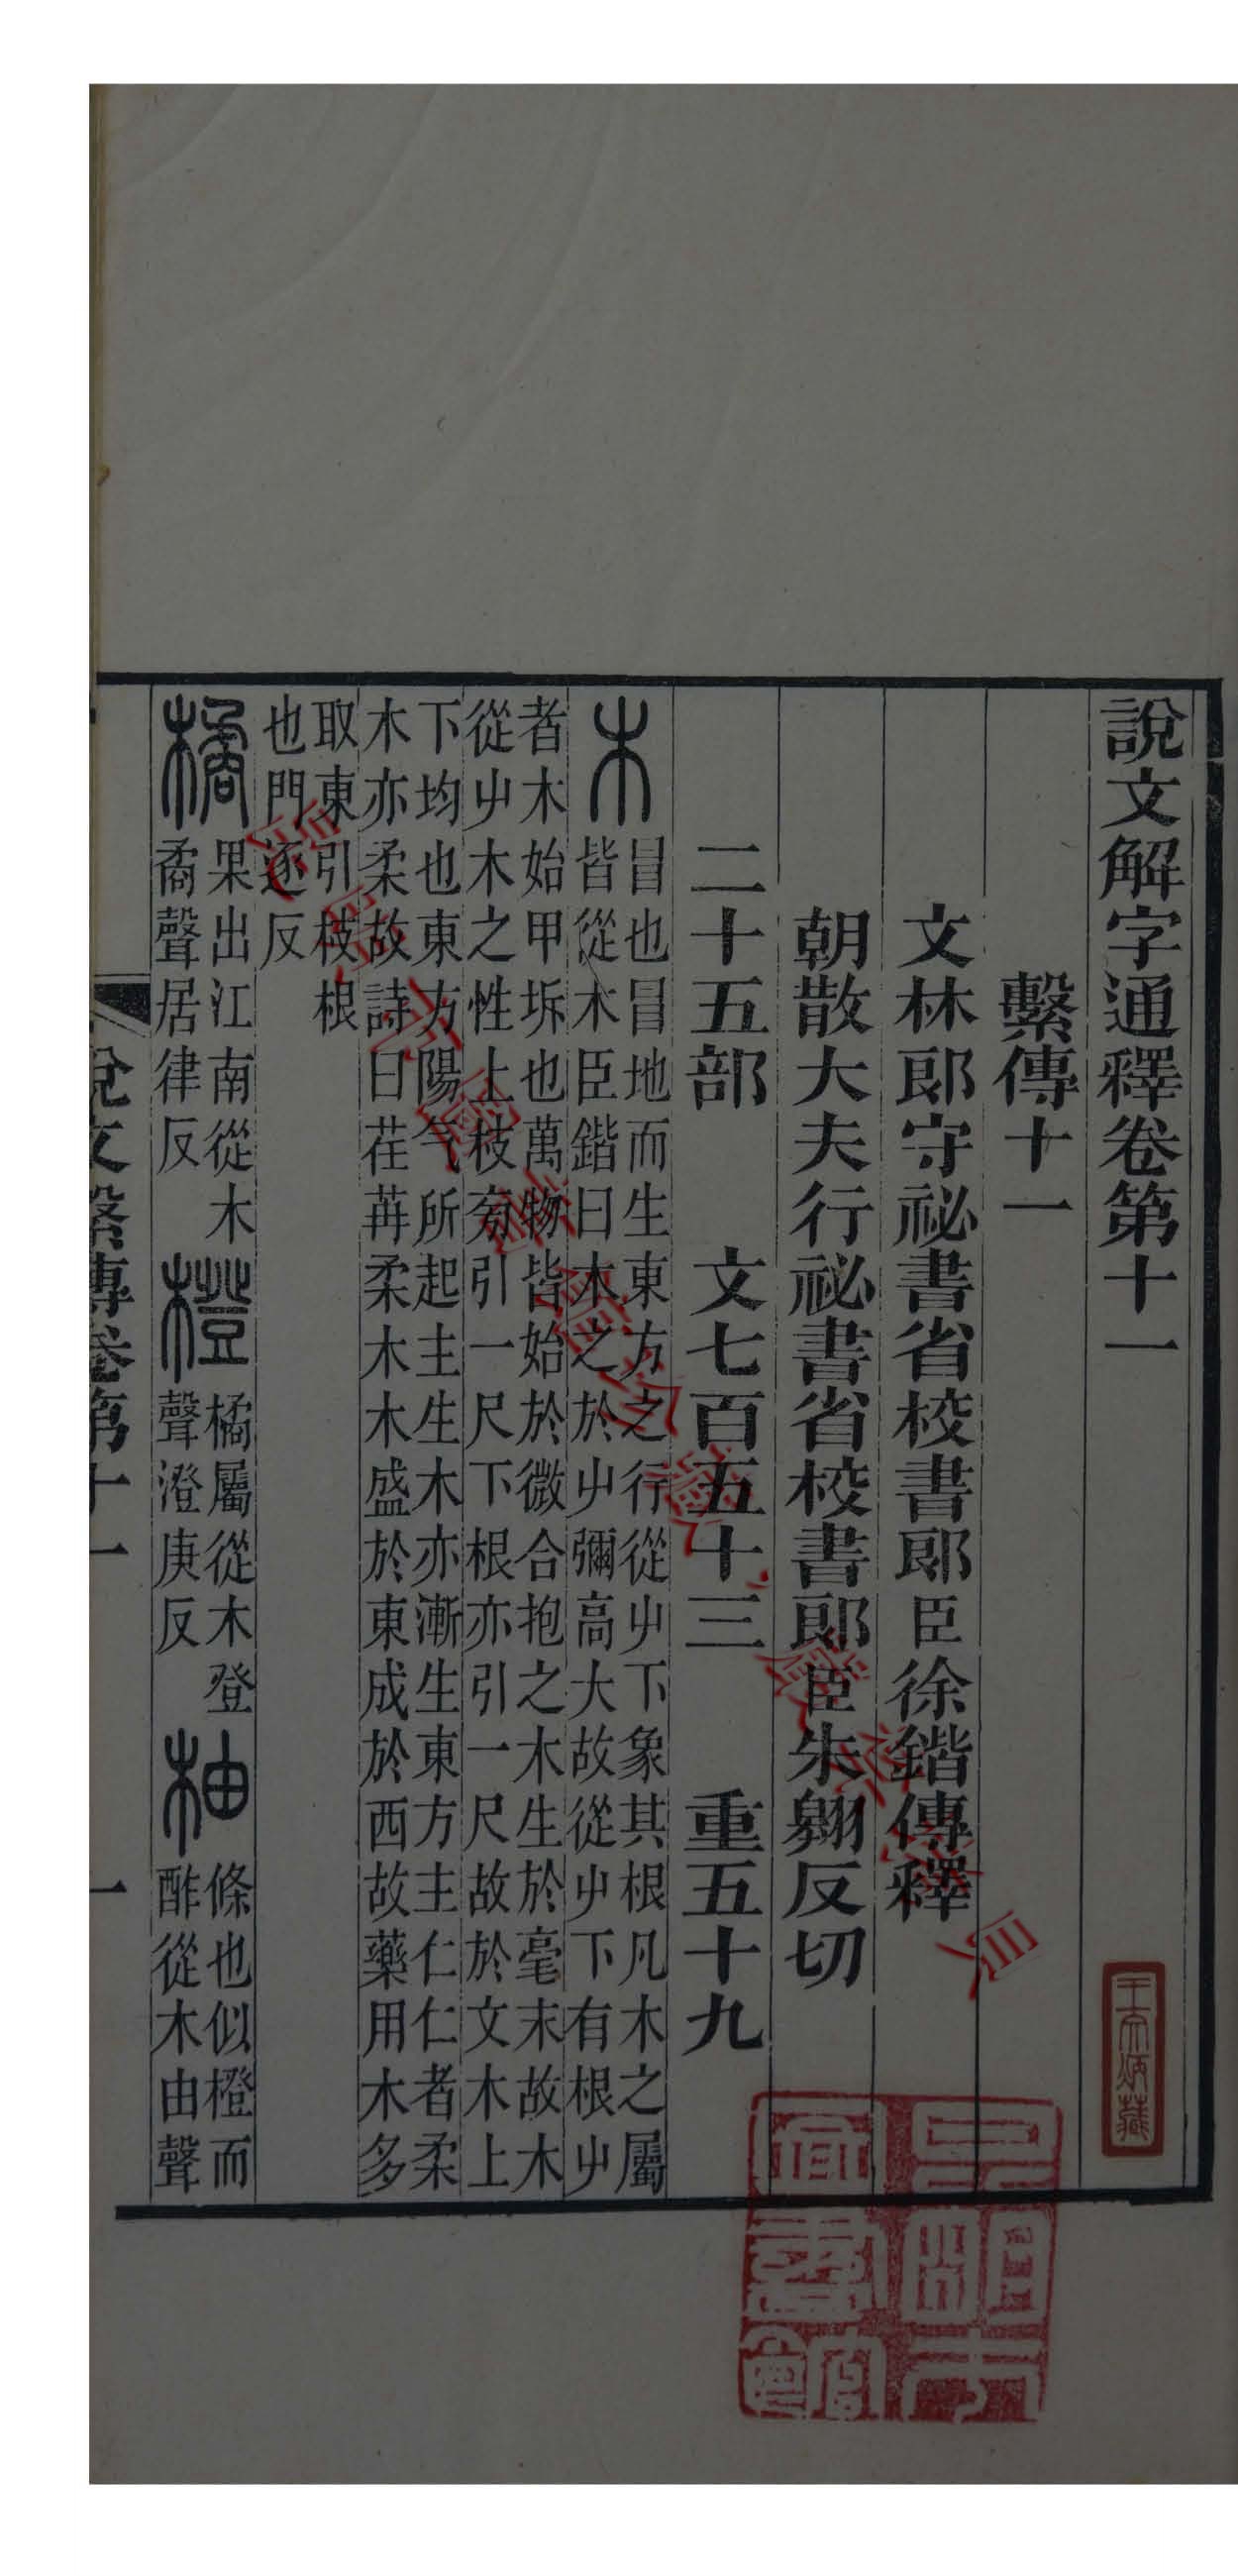 說文解字通釋卷第十一
繫傳十一
文林郎守祕書省校書郎臣徐鍇傳釋
朝散大夫行祕書省校書郎臣朱翱反切
二十五部 文七百五十三 重五十九
木
冒也冒地而生東方之行從屮下象其根凡木之屬
皆從木臣鍇曰木之於屮彌高大故從屮下有根屮
者木始甲坼也萬物皆始於微合抱之木生於毫末故木
從屮木之性上枝㫄引一尺下根亦引一尺故於文木上
下均也東方陽气所起主生木亦漸生東方主仁仁者柔
木亦柔故詩曰荏苒柔木木盛於東成於西故藥用木多
取東引枝根
也門逐反
橘
果出江南從木
矞聲居律反
橙
橘屬從木登
聲澄庚反
柚
條也似橙而
酢從木由聲
說文繫傳卷第十一
一